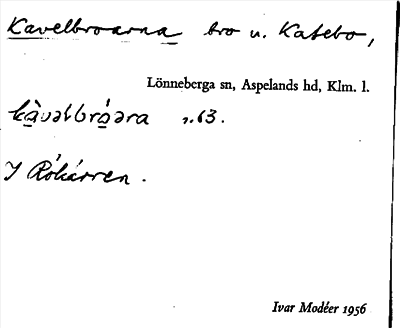 Kavelbroarna bro u. Katebo,
Lönneberga sn, Aspelands hd, Klm. l.
kàvəlbróəra r. 63.
I Rökärren.
Ivar Modéer 1956